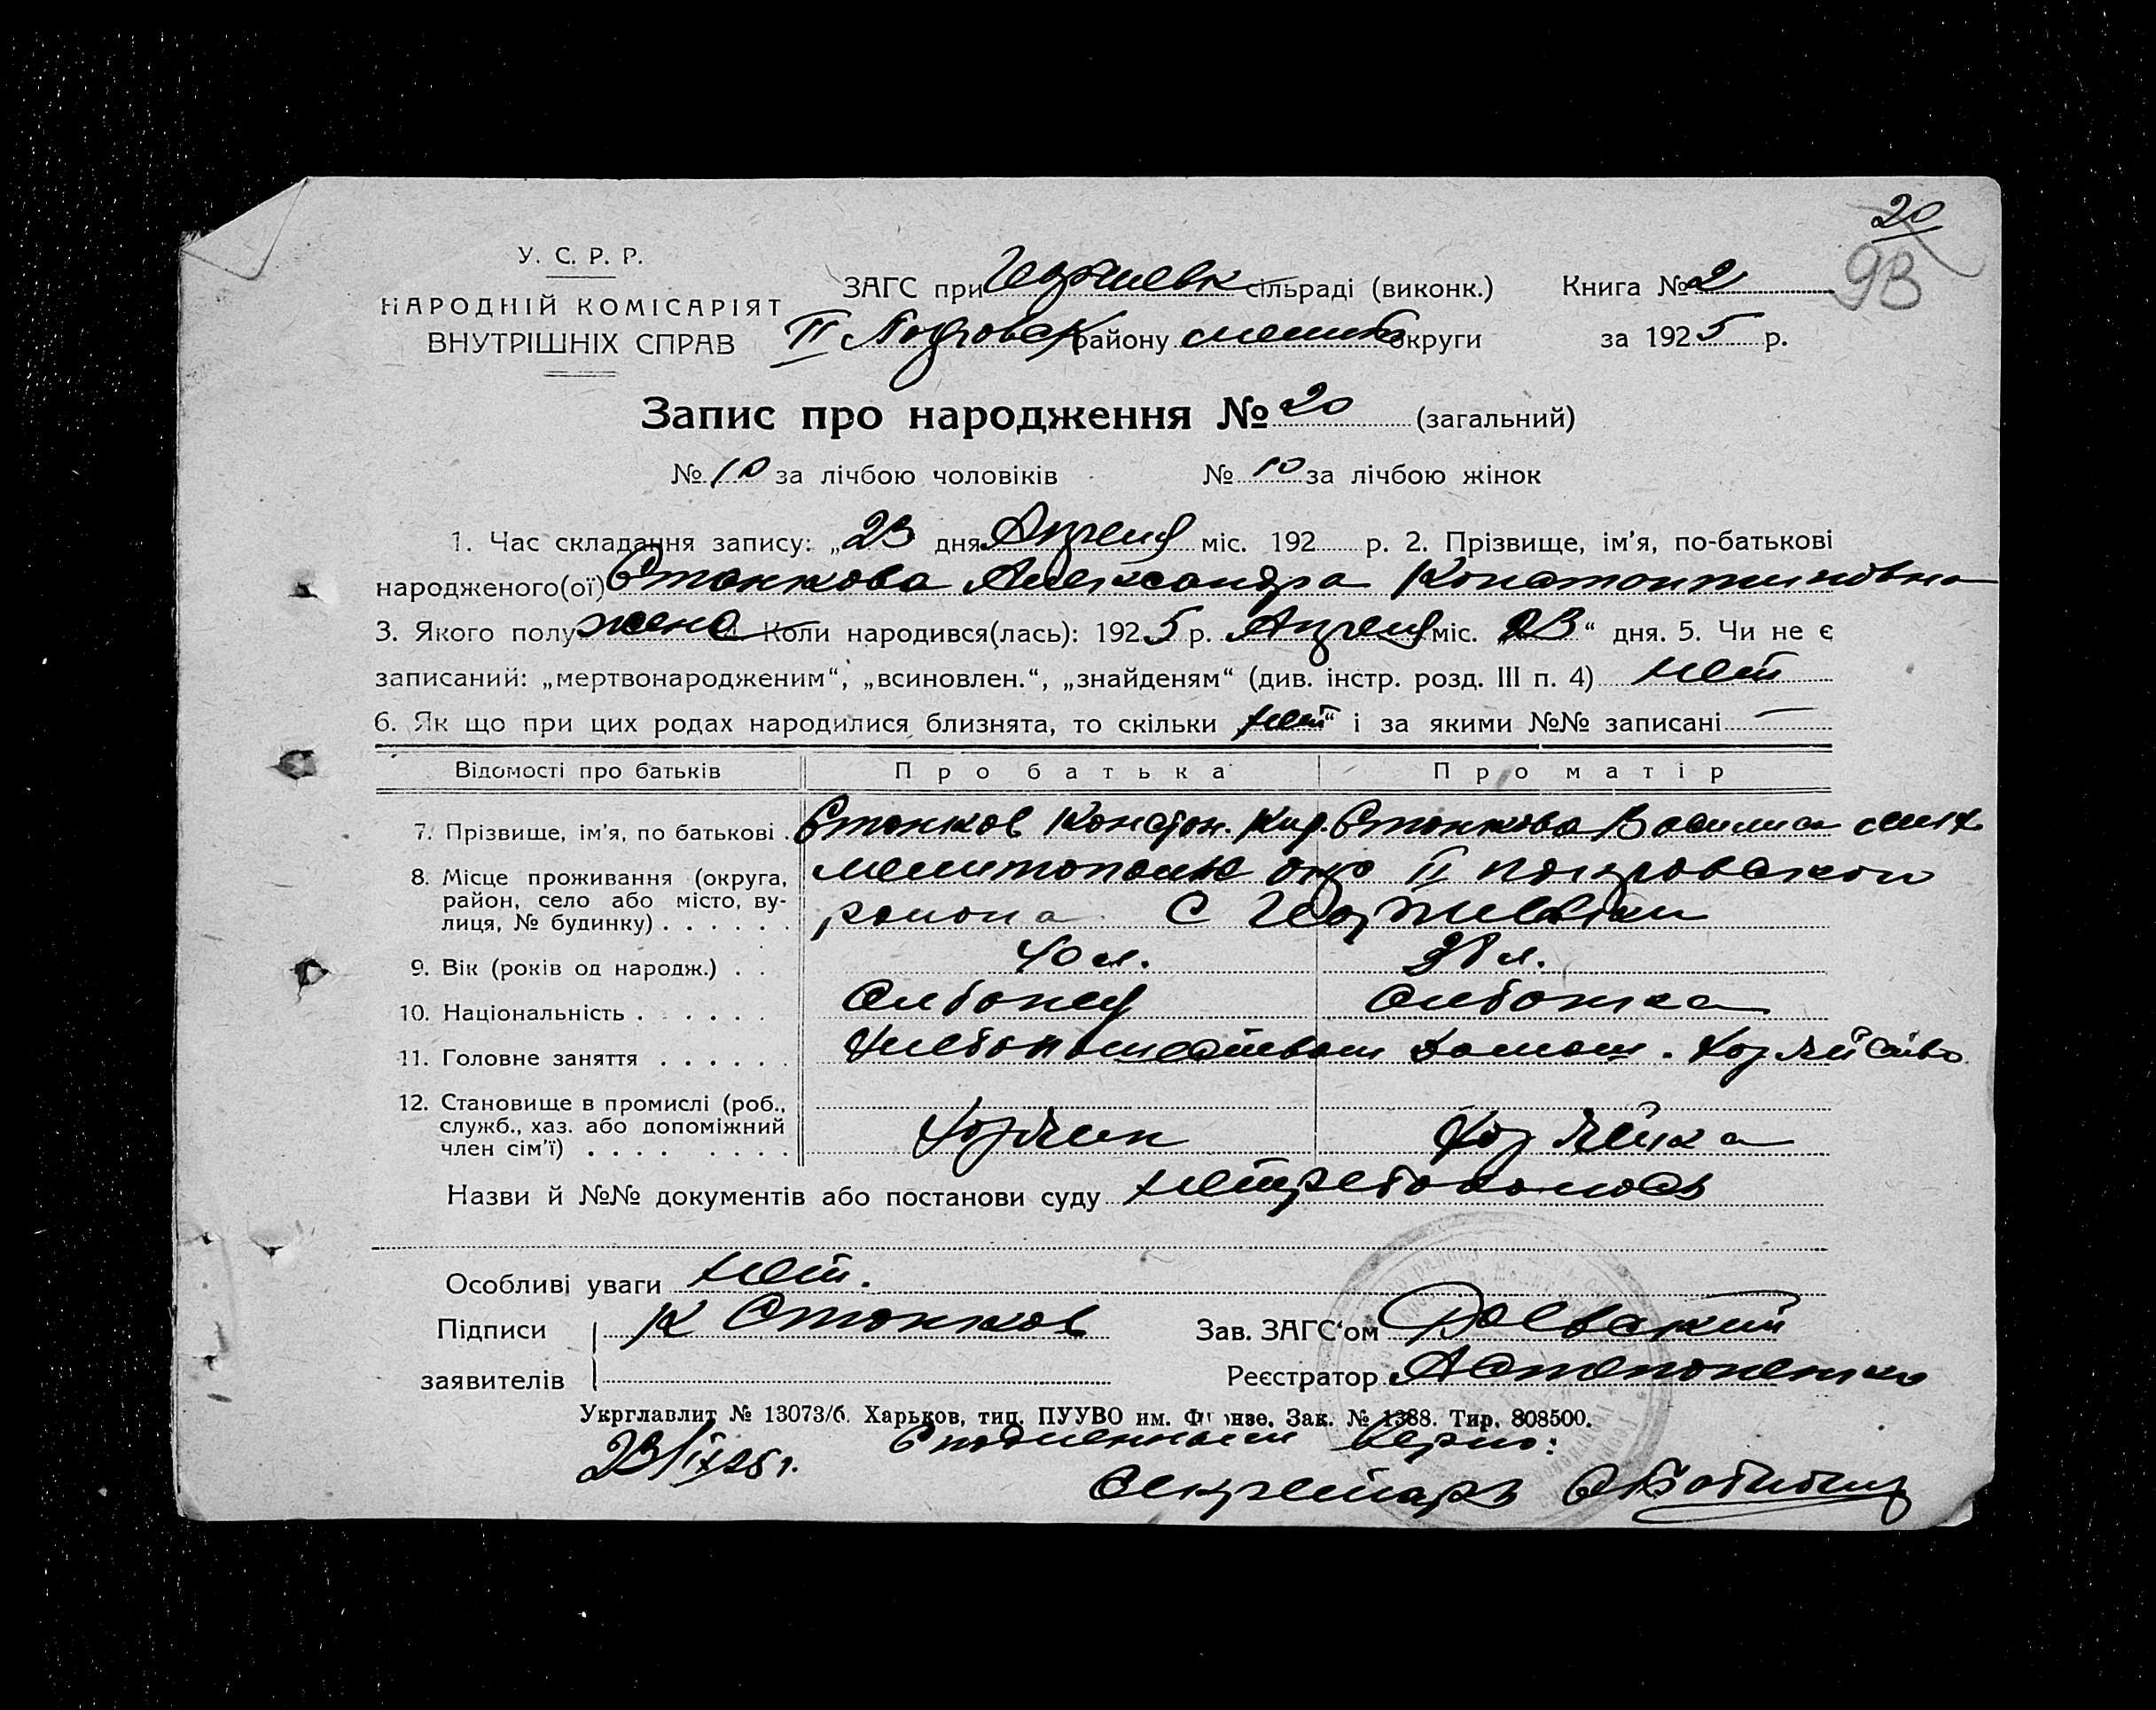 20
93
У. С. Р. Р.
НАРОДНІЙ КОМІСАРІЯТ
ВНУТРІШНІХ СПРАВ
ЗАГС при Георгиевк сільраді (виконк.) Книга № 2
II Покровск району мелит округи за 1925 р.
Запис про народження № 20 (загальний)
№ 10 за лічбою чоловіків № 10 за лічбою жінок
1. Час складання запису: „23 дня Апреля міс. 192 р. 2. Прізвище, ім'я, по-батькові
народженого(ої) Станкова Александра Константиновна
3. Якого полу жено Коли народився(лась): 1925 р. Апреля міс. „23“ дня. 5. Чи не є
записаний: „мертвонародженим“, „всиновлен.“, „знайденям“ (див. інстр. розд. III п. 4) нет
6. Як що при цих родах народилися близнята, то скільки „нет“ і за якими №№ записані —
Відомості про батьків Про батька Про матір
7. Прізвище, ім'я, по батькові . Станков Констан. Кир. Станкова Василиса мих
8. Місце проживання (округа, район, село або місто, вулиця, № будинку) . . . . . . мелитопольк окр II покровской
района С Георгиевки
9. Вік (років од народж.) . . 40 л. 38 л.
10. Національність . . . . . . Албонец Албонка
11. Головне заняття . . . . . . Хлебопашество Домаш. Хозяйство
12. Становище в промислі (роб., служб., хаз. або допоміжний член сім'ї) . . . . . . . . Хозяин Хозяйка
Назви й №№ документів або постанови суду нетребовалось
Особливі уваги нет.
Підписи К Станков Зав. ЗАГС'ом Раевский
заявителів Реєстратор
Укрглавлит № 13073/б. Харьков, тип. ПУУВО им. Фрунзе. Зак. № 1388. Тир. 808500.
С подленным верно:
23/IX 25 г.
Секретарь